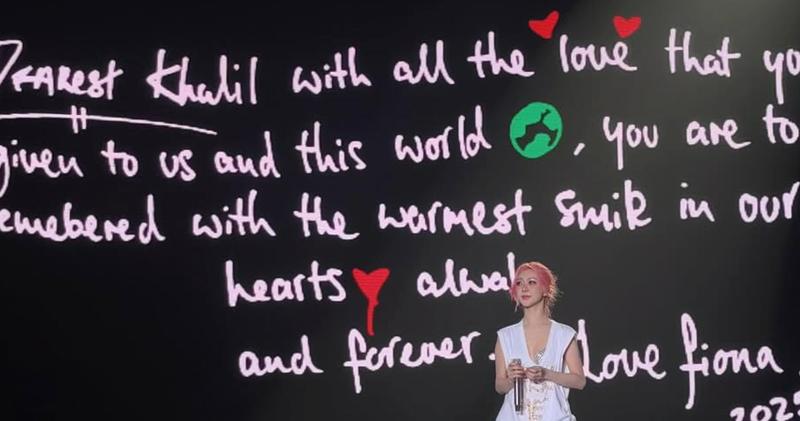 DEAREST Khalil with all the love that yo
given to us and this world , you are to
emebered with the warmest smile in our
hearts alwa
and forever. Love fiona
2025